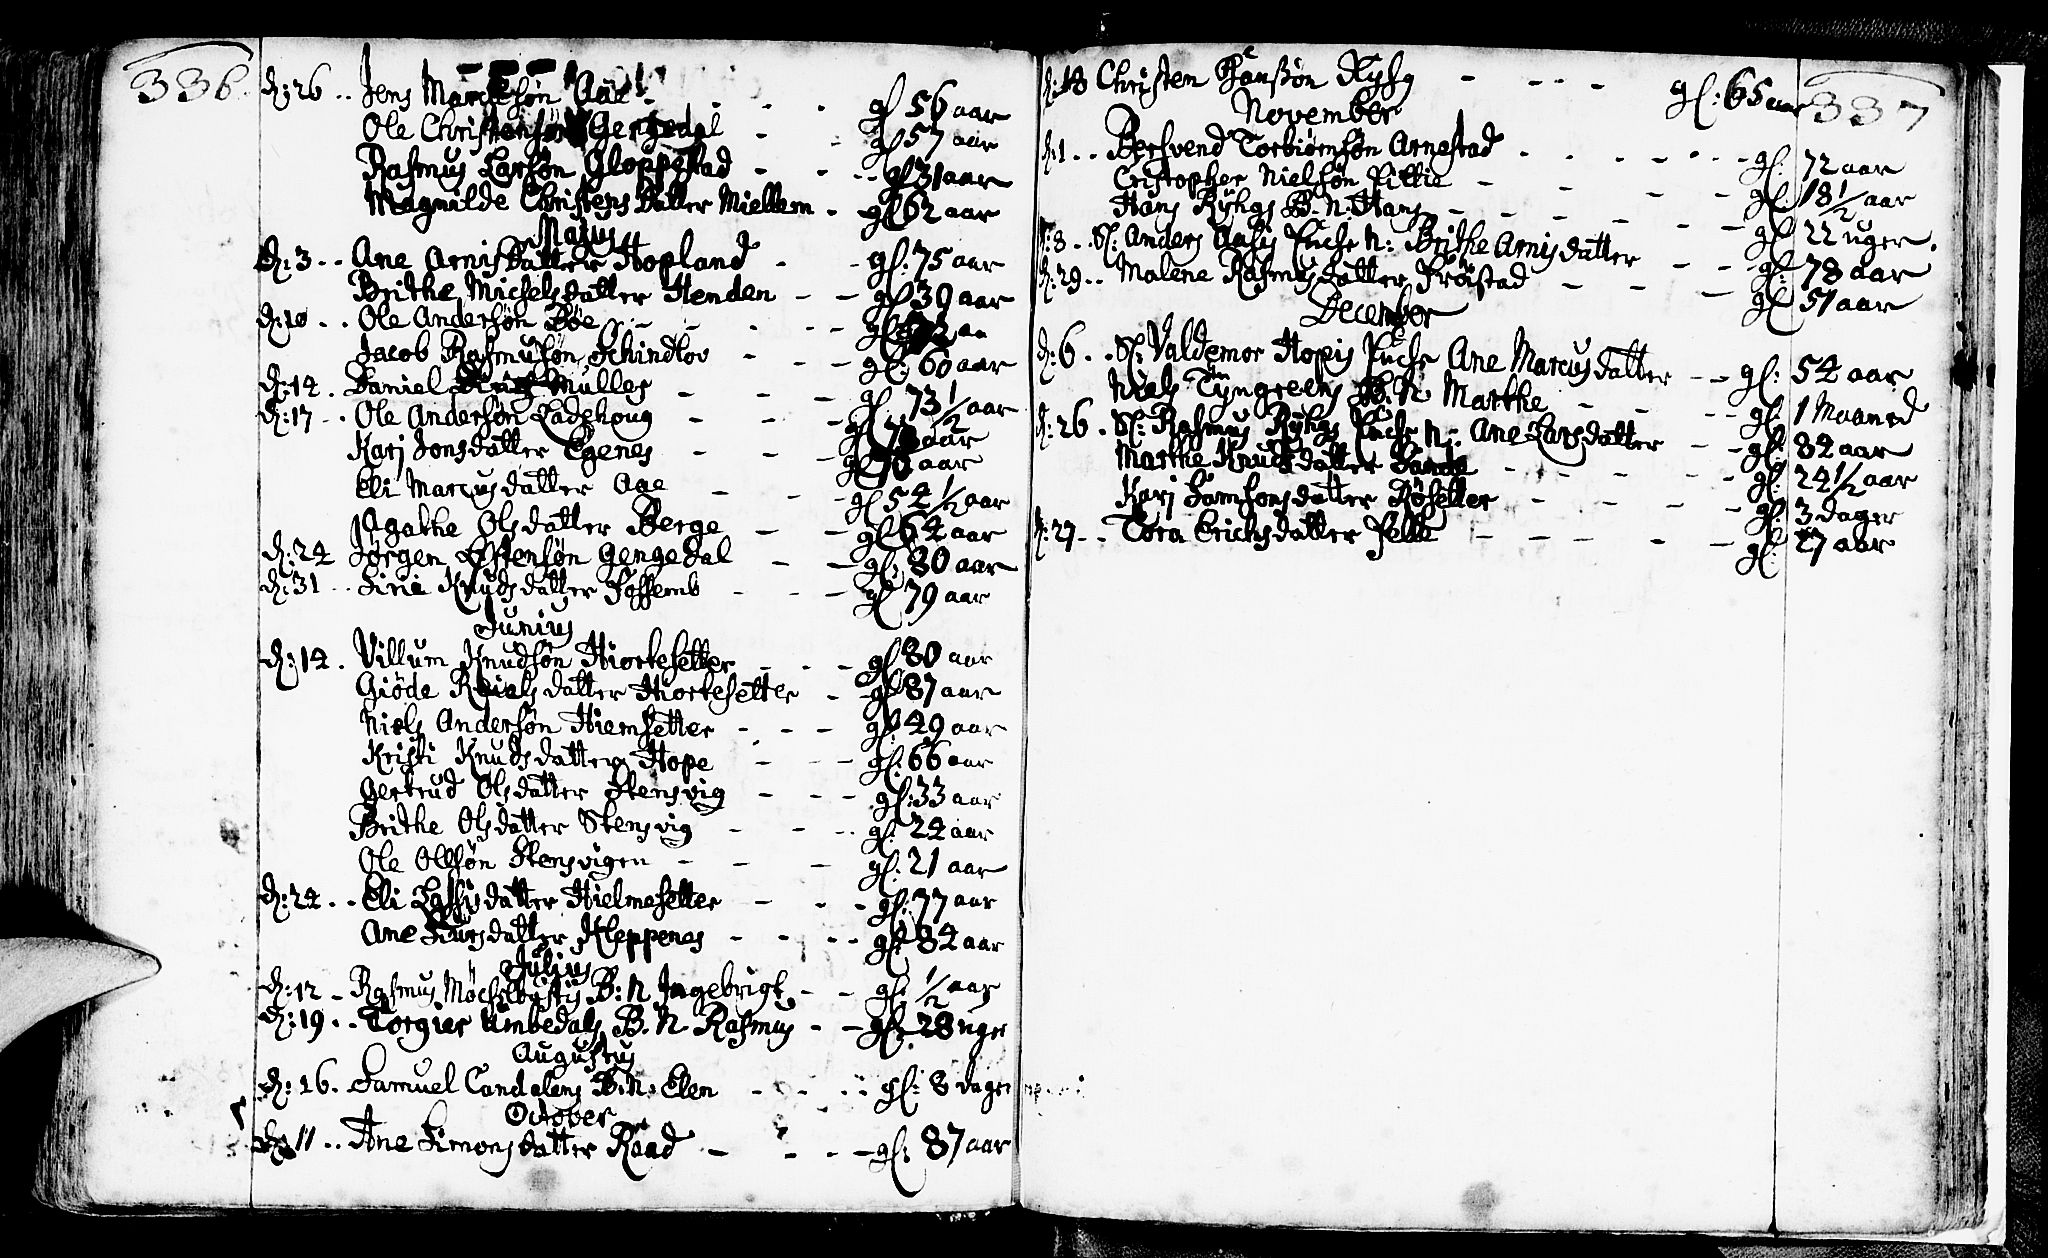 336.
d: 26 .. Jens Marcusøn Aae gl 56 aar
Ole Christensøn Gengedal gl 57 aar
Rasmus Larsøn Gloppestad gl 31 aar
Magnilde Christens Datter Miellem gl 62 aar
Majus
d: 3 .. Ane Arnisdatter Hopland gl: 75 aar
Brithe Michelsdatter Henden gl 39 aar
d: 10 .. Ole Andersøn Bøe gl
Jacob Rasmusøn Schindlov gl: 60 aar
d: 14. Daniel Müller gl 73 1/2 aar
d: 17 .. Ole Andersøn Ladehoug gl aar
Karj Jonsdatter Egenes gl aar
Eli Marcusdatter Aae gl 54 1/2 aar
Agathe Olsdatter Berge gl 64 aar
d: 24 Jørgen Estensøn Gengedal gl: 80 aar
d: 31 .. Siri Knudsdatter Fossemb gl 79 aar
Junius
d: 14. Villum Knudsøn Hiortesetter gl 80 aar
Giöde datter Hiortesetter gl 87 aar
Niels Andersøn Hiemsetter gl: 49 aar
Kristi Knudsdatter Hope gl: 66 aar
Gertrud Olsdatter Stensvig gl: 33 aar
Brithe Olsdatter Stensvig gl: 24 aar
Ole Olesøn Stensvigen gl: 21 aar
d: 24 .. Eli Lassisdatter Hielmesetter gl: 77 aar
Ane Siursdatter Kleppenes gl: 84 aar
Julius
d: 12 Rasmus Möchlebustis B: N Ingebrigt gl: 1/2 aar
d: 19 .. Torgier Embedals B. N. Rasmus gl: 28 uger
Augustus
d: 26. Samuel Tandalens B. N: Elen gl: 8 dager
October
d: 11 .. Ane Simonsdatter Raad gl: 87 aar
337
d: 18 Christen Hansøn Rysg gl: 65 aar
November
d: 1 .. Bersvend Torbiørnsøn Arnestad gl: 72 aar
Cristopher Nielsøn Fittie gl: 18 1/2 aar
Hans Rÿhgs B. N: Hans gl 22 uger.
d: 8 .. Sl: Anders Aasis Enche N: Brithe Arnisdatter gl: 78 aar
d: 29 .. Malene Rasmusdatter Frøistad gl 51 aar
December
d: 6 .. Sl: Valdemor Hopis Enche Ane Marcusdatter gl: 54 aar
Niels Tÿngreens B. N Marthe gl 1 Maaned
d: 26 . Sl: Rasmus Rÿhgs Enche N: Ane Larsdatter gl: 82 aar
Marthe Knudsdatter Sande gl: 24 1/2 aar
Karj Samsonsdatter Røsetter gl: 3 dager
d: 27 .. Tora Erichsdatter Felle gl: 27 aar